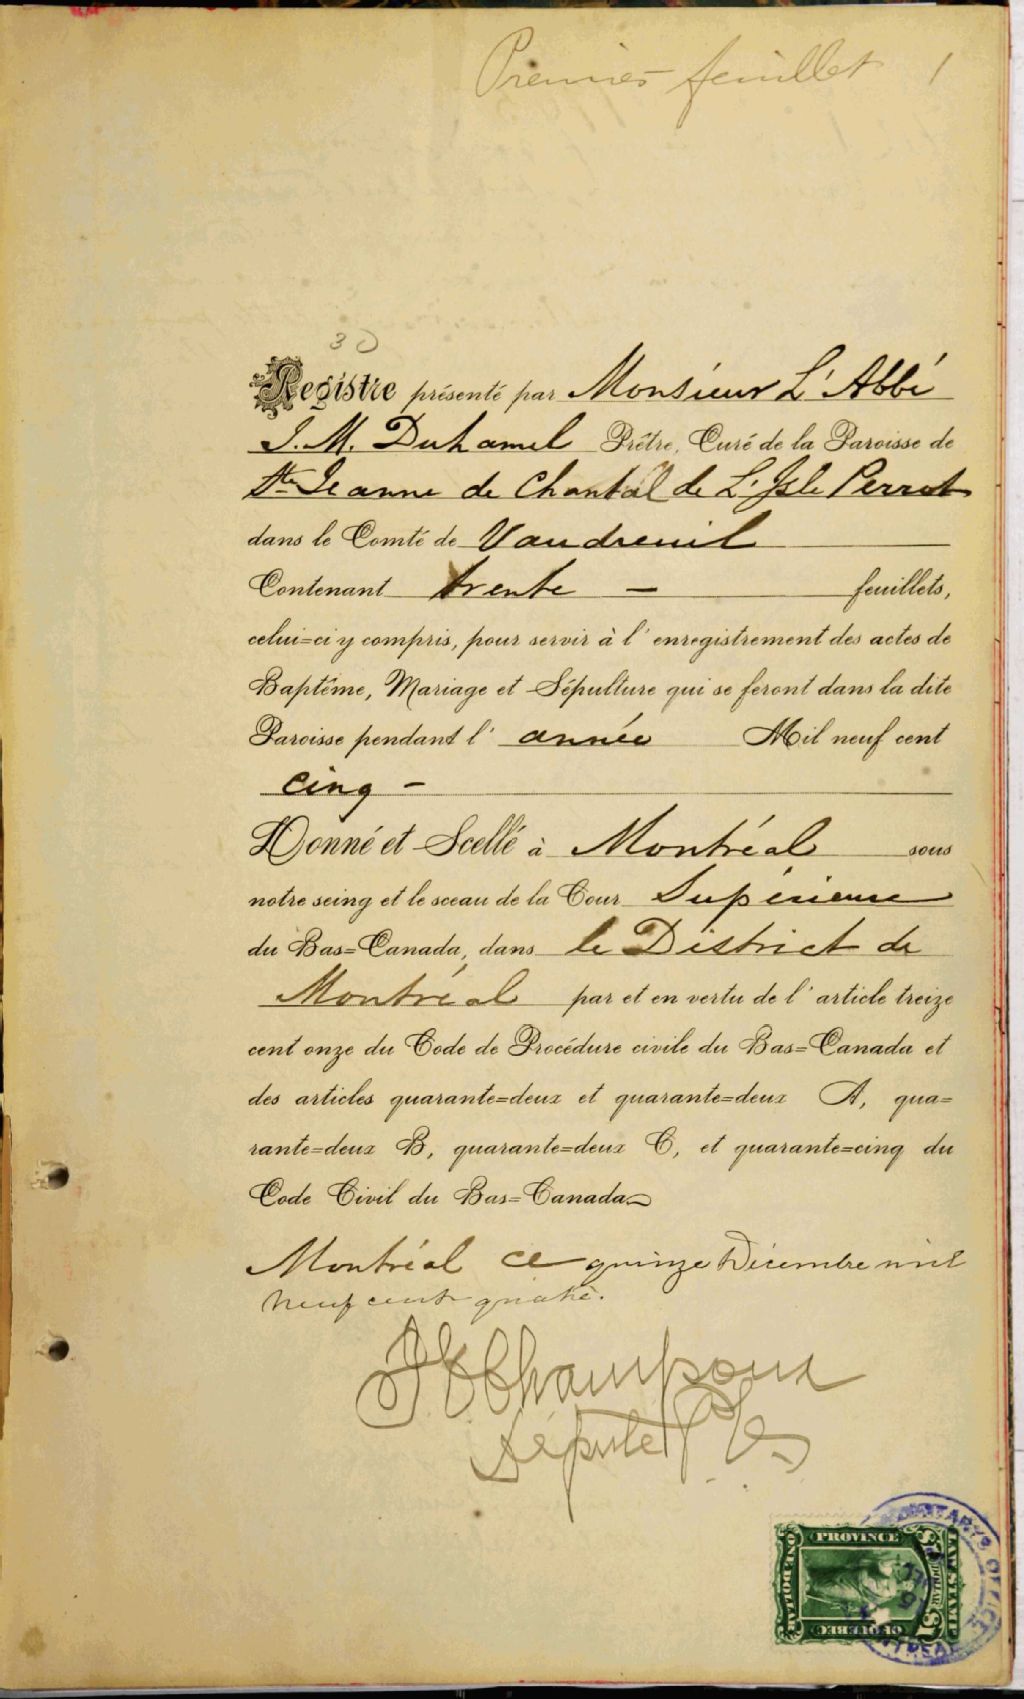 Premier feuillet 1
30
Registre présenté par Monsieur L'Abbé
J. M. Duhamel Prêtre, Curé de la Paroisse de
Ste Jeanne de Chantal de L'Isle Perrot
dans le Comté de Vaudreuil
Contenant trente — feuillets,
celui=ci y compris, pour servir à l'enregistrement des actes de
Baptême, Mariage et Sépulture qui se feront dans la dite
Paroisse pendant l'année Mil neuf cent
cinq -
Donné et Scellé à Montréal sous
notre seing et le sceau de la Cour Supérieure
du Bas=Canada, dans le District de
Montréal par et en vertu de l'article treize
cent onze du Code de Procédure civile du Bas=Canada et
des articles quarante=deux et quarante=deux A, qua=
rante=deux B, quarante=deux C, et quarante=cinq du
Code Civil du Bas=Canada
Montréal ce quinze Décembre mil
neuf cent quatre.
Champoux
Député P
PROVINCE
QUEBEC
LAW STAMP
ONE DOLLAR
$1
OFFICE
MONTREAL